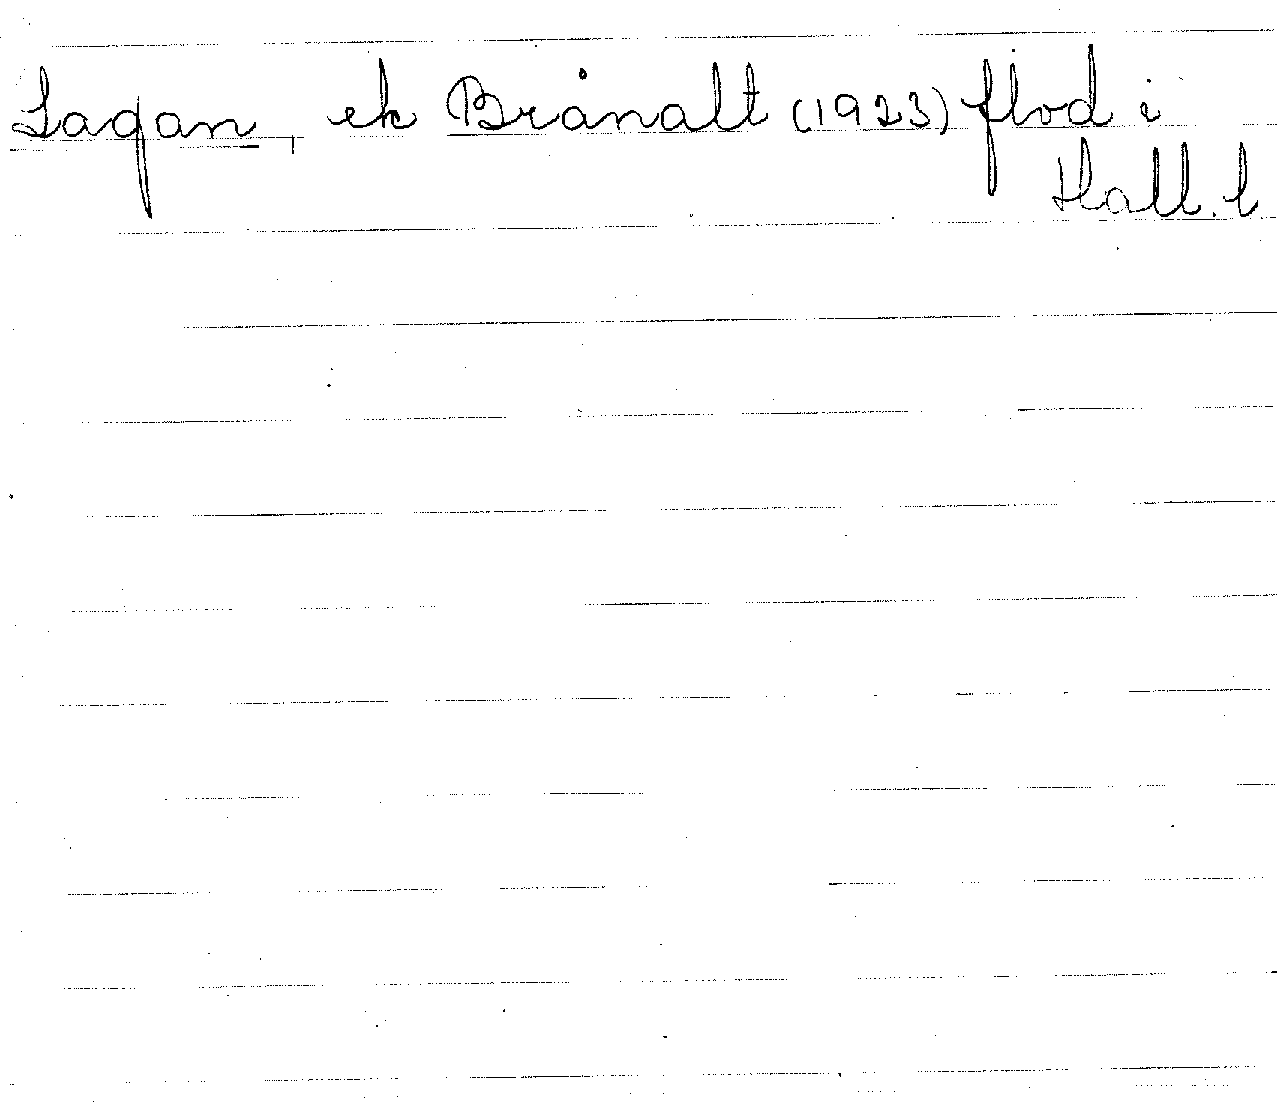 Lagan, ek Brånalt (1923) flod i
Hall. l.